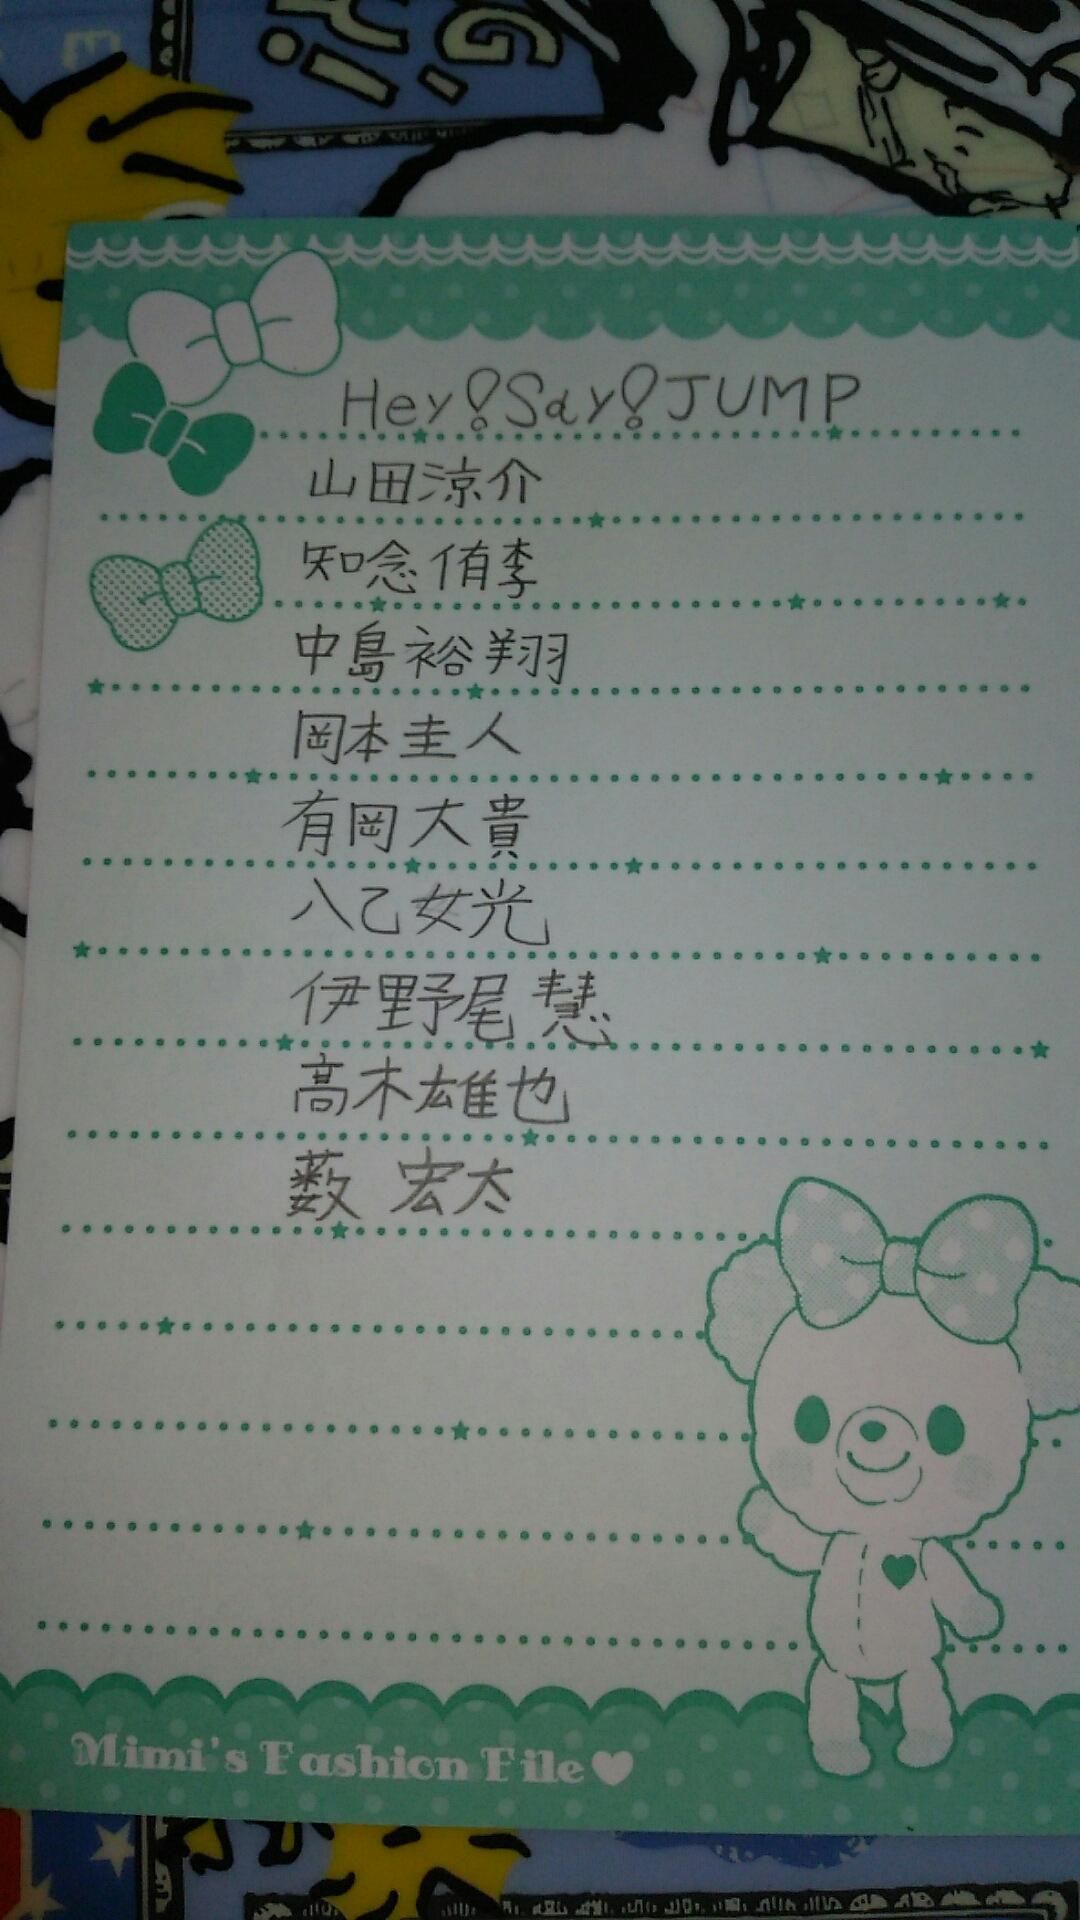 Hey!Say!JUMP
山田涼介
知念侑李
中島裕翔
岡本圭人
有岡大貴
八乙女光
伊野尾 慧
高木雄也
薮 宏太
Mimi's Fashion File♥